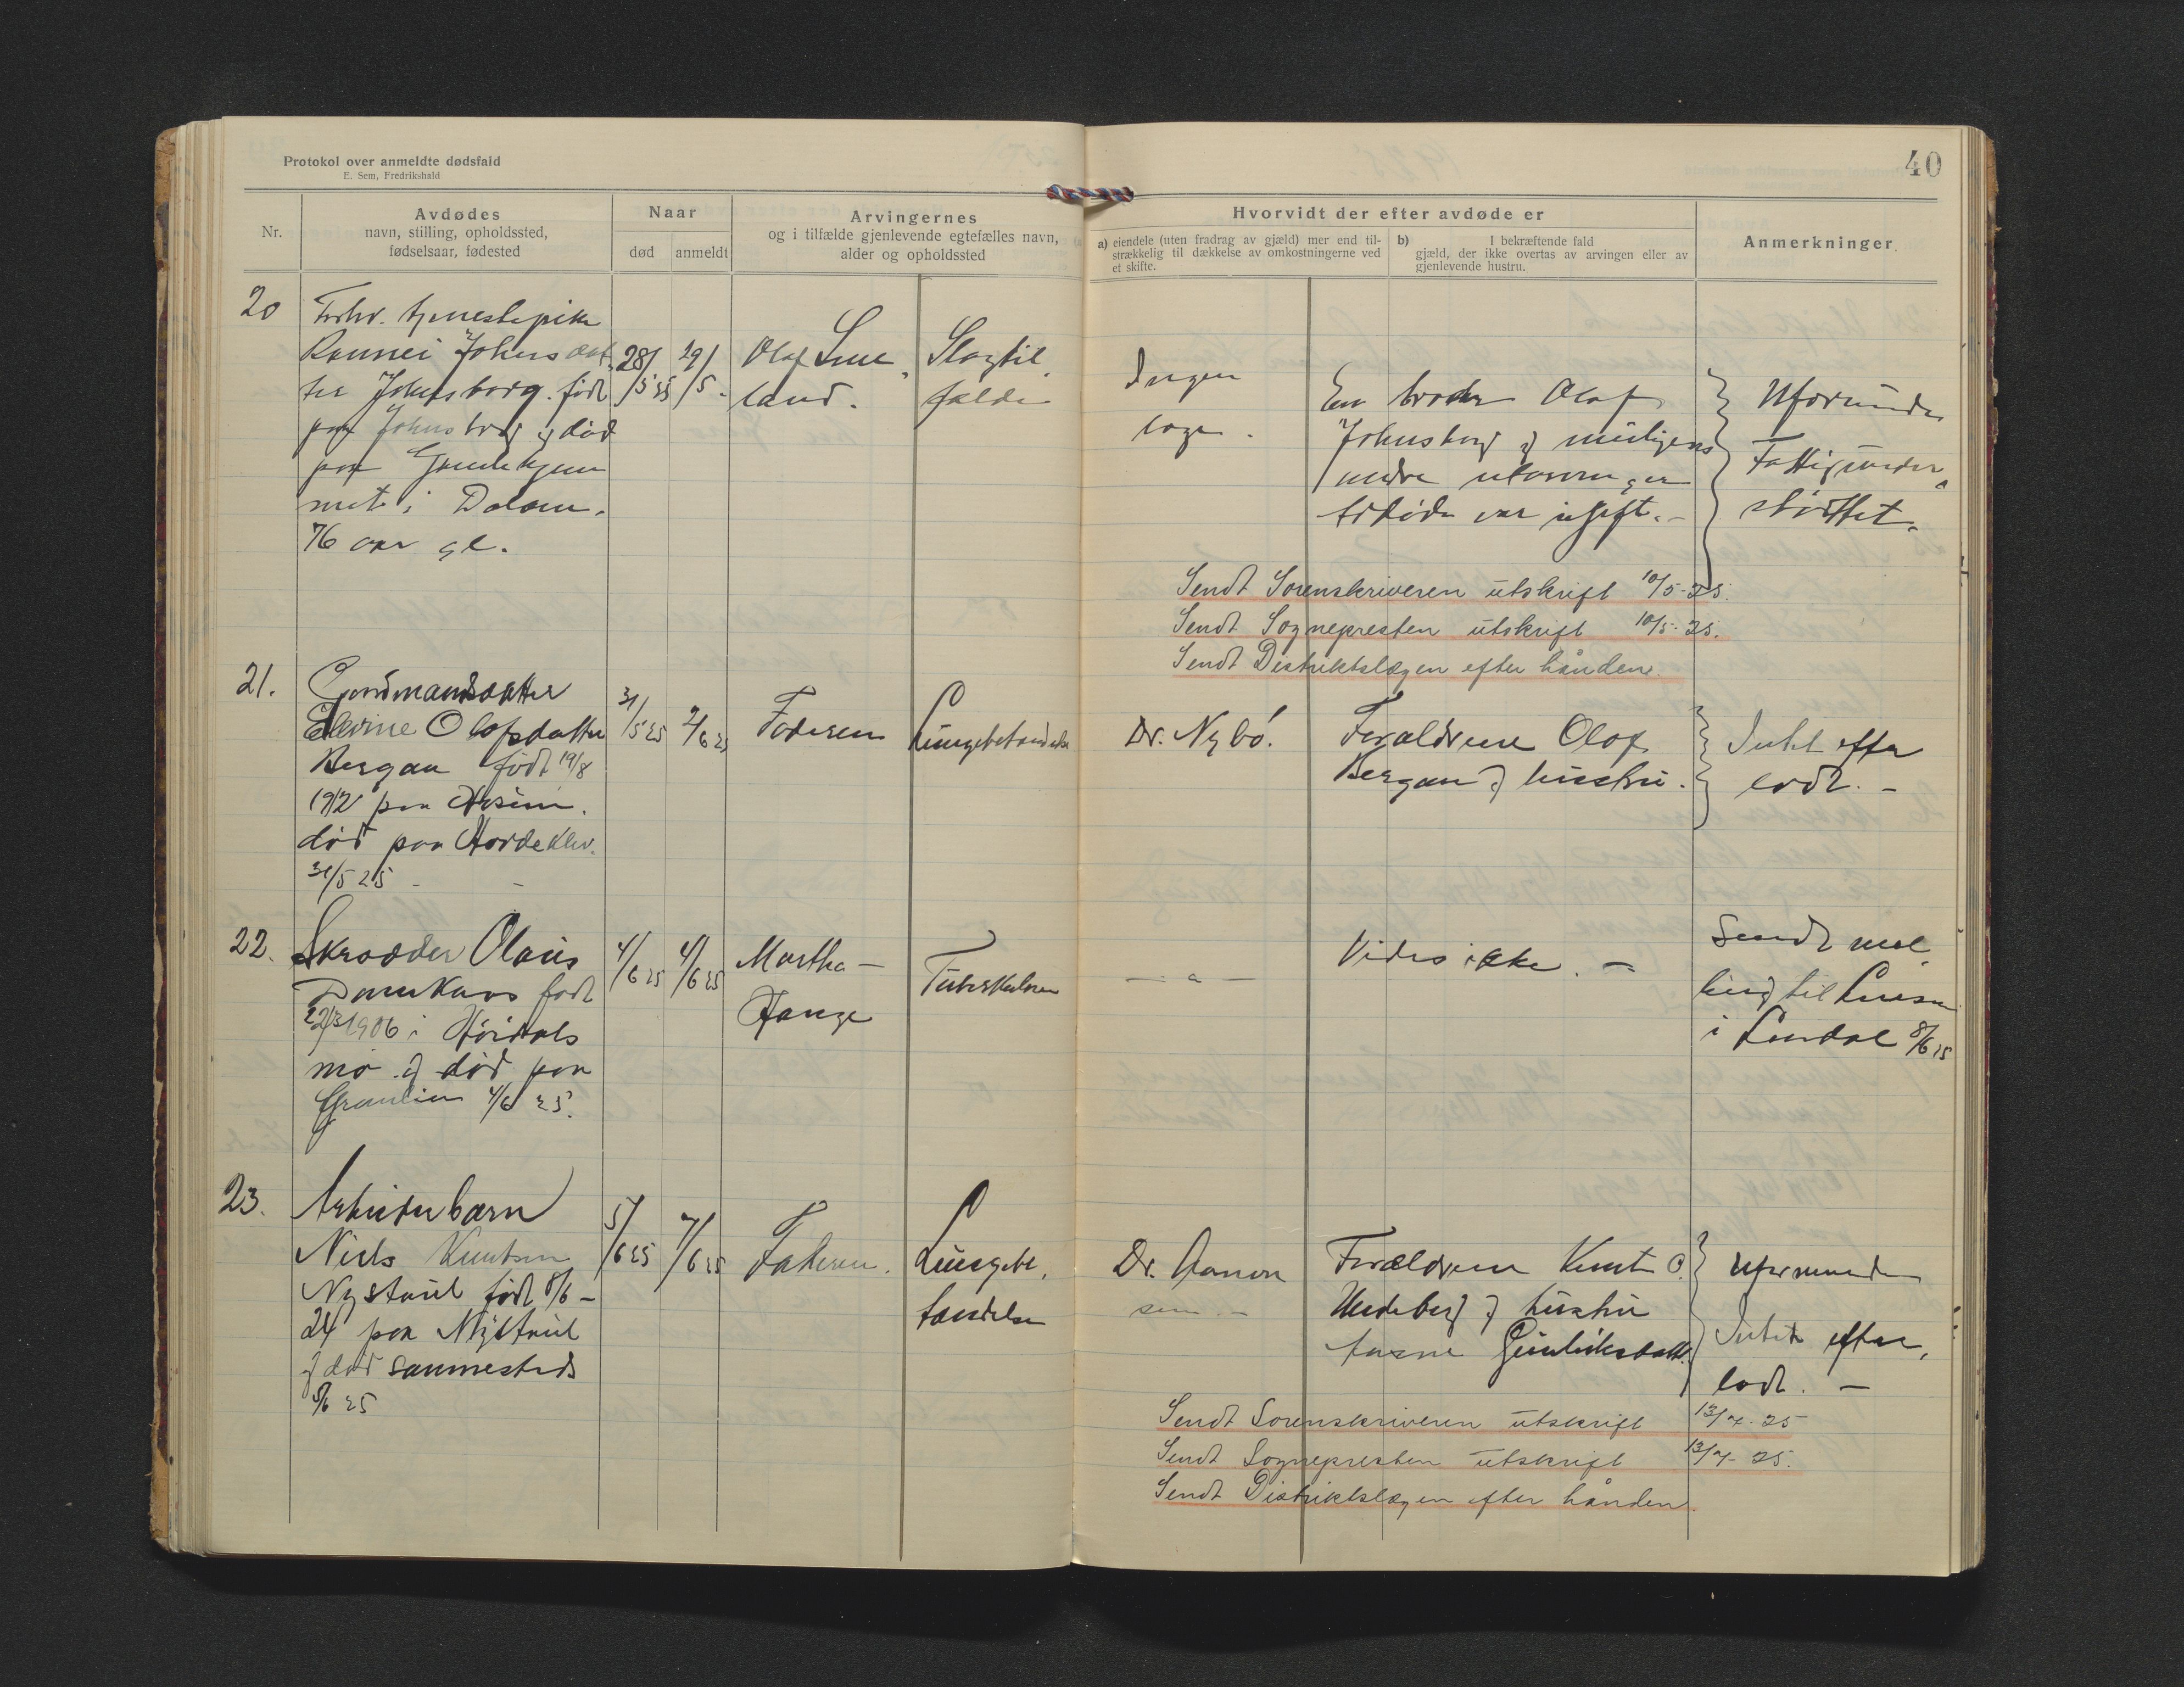 Protokol over anmeldte dødsfald
E. Sem, Fredrikshald
40
Nr.
Avdødes
navn, stilling, opholdssted,
fødselsaar, fødested
Naar
død
anmeldt
Arvingernes
og i tilfælde gjenlevende egtefælles navn,
alder og opholdssted
Hvorvidt der efter avdøde er
a) eiendele (uten fradrag av gjæld) mer end til-
strækkelig til dækkelse av omkostningerne ved
et skifte.
b) I bekræftende fald
gjæld, der ikke overtas av arvingen eller av
gjenlevende hustru.
Anmerkninger
20
Forhv. tjenestepike
Rannei Johnsdat-
ter Johnsborg. født
paa Johnsborg og død
paa Gamlehjem
met i Dalom.
76 aar gl.
28/5 25
29/5.
Olaf
land.
Slagtil
fælde
Ingen
læge.
En broder Olaf
Johnsborg og muligens
andre
Avdøde var ugift. -
Uformuende
Fattigunder
støttet.
Sendt Sorenskriveren utskrift 10/5-25.
Sendt Sognepresten utskrift 10/5-25.
Sendt Distriktslægen efter hånden.
21.
Gaardmandsdatter
Olofsdatter
Bergan født 19/8
1912 paa
død paa
31/5 25 -
31/5 25
2/6 25
Faderen
Lungebetændelse
Dr. Nybö.
Foraldrene Olof
Bergan og hustru.
Intet efter
ladt. -
22.
Skrædder Olaus
født
1906 i
mo og død paa
4/6 25.
4/6 25
4/6 25
Martha -
Hauge
Tuberkulose
- a -
Vides ikke. -
Sendt mel
ding til
i 8/6 25
23.
Arbeiderbarn
Niels Knutsen
Nystaul født 8/6 -
24 paa Nystaul
og død sammesteds
5/6 25
5/6 25
7/6 25
Faderen.
Lungebe,
tændelse
Dr. Aanon
sen. -
Forældrene Knut O.
og hustru
Gunleiksdatt.
Uformuende
Intet efter,
ladt. -
Sendt Sorenskriveren utskrift 13/7-25
Sendt Sognepresten utskrift 13/7-25.
Sendt Distriktslægen efter hånden.